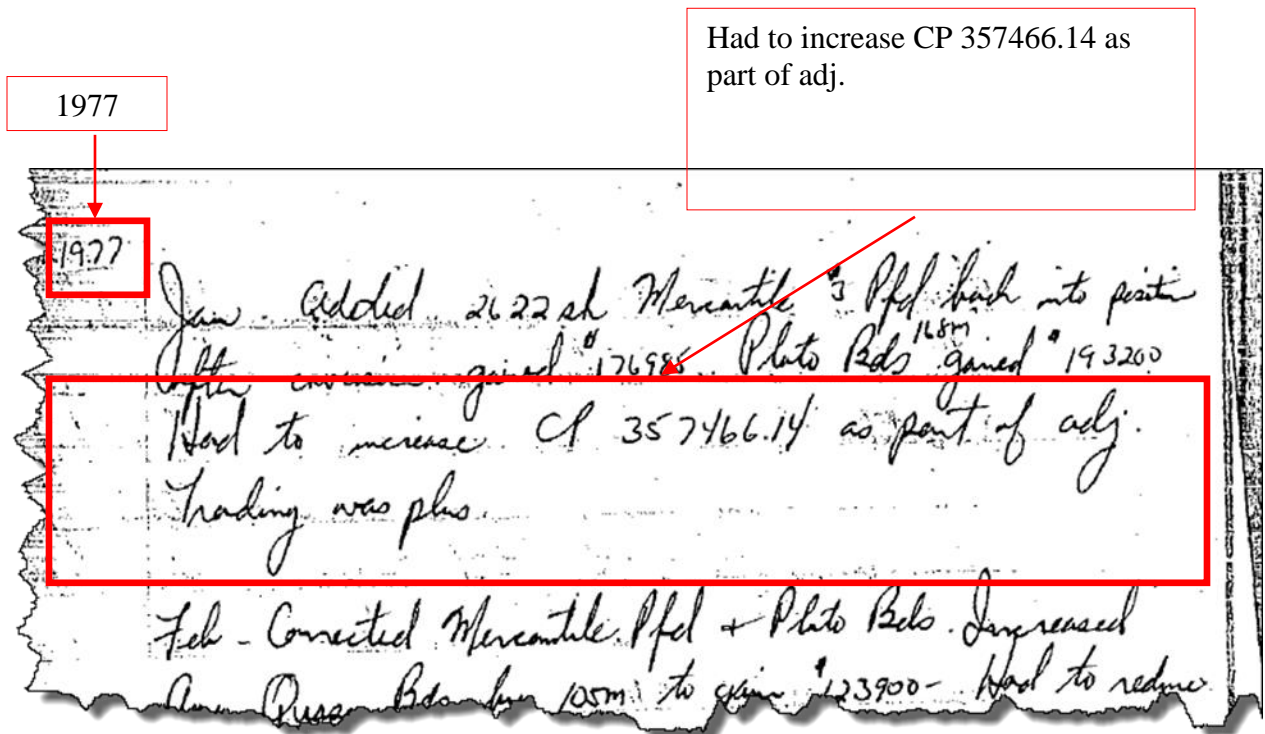 Had to increase CP 357466.14 as
part of adj.
1977
1977
Jan. Added 2622 sh Mercantile $3 Pfd back into position
After gained $176985 Pluto Bds 168m gained $193200
Had to increase CP 357466.14 as part of adj.
Trading was plus.
Feb - Corrected Mercantile Pfd + Pluto Bds. Increased
Bds by 105m to gain $123900- Had to reduce